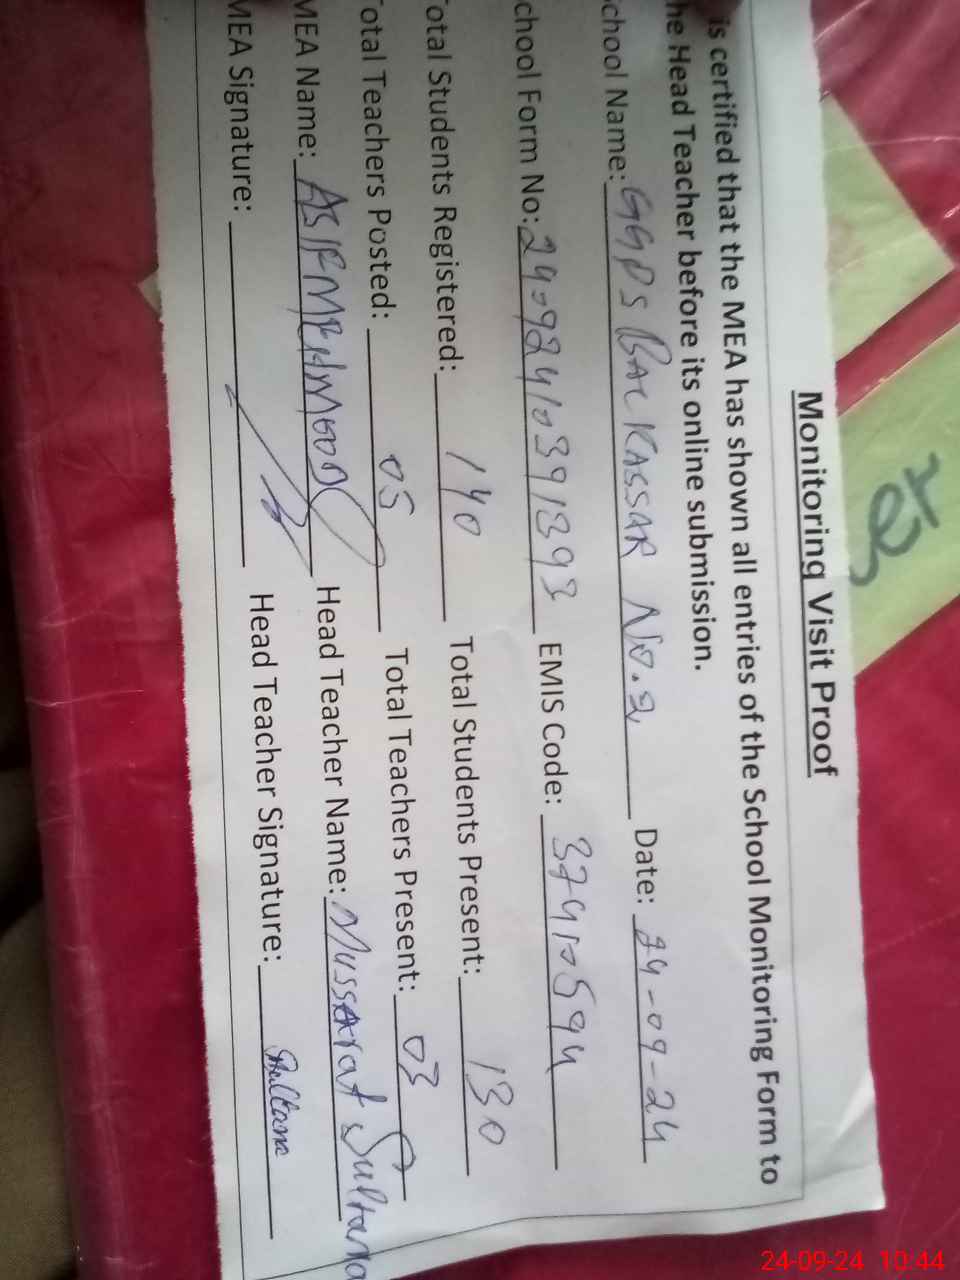 Monitoring Visit Proof
is certified that the MEA has shown all entries of the School Monitoring Form to
he Head Teacher before its online submission.
chool Name: GGPS BAC KASSAR No.2 Date: 24-09-24
chool Form No: 24092410391393 EMIS Code: 37410594
Total Students Registered: 140 Total Students Present: 130
Total Teachers Posted: 05 Total Teachers Present: 03
MEA Name: ASIF MEHMOOD Head Teacher Name: Mussarat Sultana
MEA Signature: Head Teacher Signature: Sultana
24-09-24 10:44